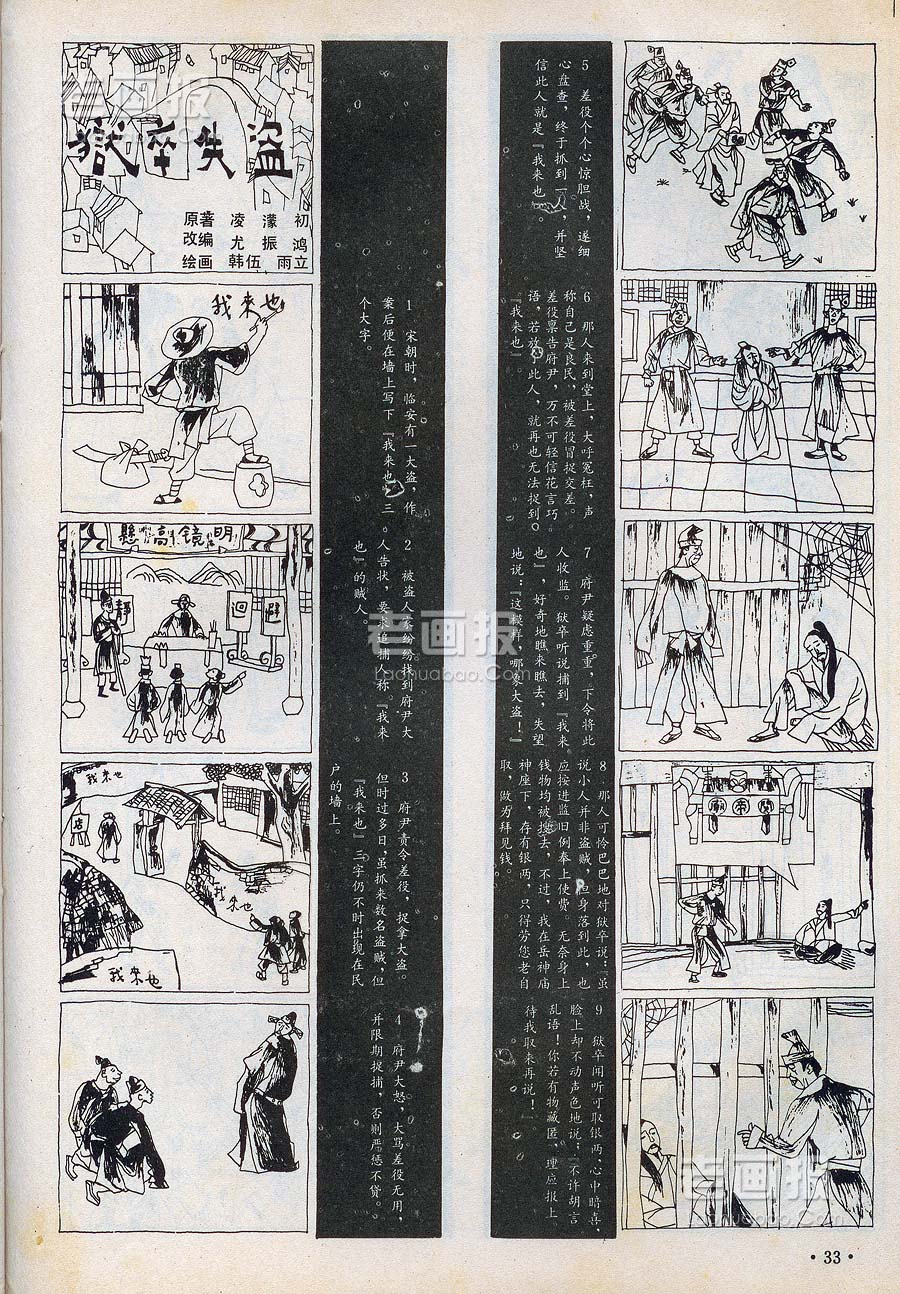 獄卒失盗
原著 凌濛初
改编 尤振鸿
绘画 韩伍 雨立
我來也
1 宋朝时,临安有一大盗,作
案后便在墙上写下『我来也』三
个大字。
懸高镜明
靜
迴避
2 被盗人家纷纷找到府尹大
人告状,要求追捕人称『我来
也』的贼人。
我來也
店
我來也
我來也
3 府尹责令差役,捉拿大盗。
但时过多日,虽抓来数名盗贼,但
『我来也』三字仍不时出现在民
户的墙上。
4 府尹大怒,大骂差役无用,
并限期捉捕,否则严惩不贷。
5 差役个个心惊胆战,遂细
心盘查,终于抓到一人,并坚
信此人就是『我来也』。
6 那人来到堂上,大呼冤枉,声
称自己是良民,被差役冒捉交差。
差役禀告府尹,万不可轻信花言巧
语,若放了此人,就再也无法捉到
『我来也』
7 府尹疑虑重重,下令将此
人收监。狱卒听说捕到『我来
也』,好奇地瞧来瞧去,失望
地说:『这模样,哪象大盗!』
8 那人可怜巴巴地对狱卒说:『虽
说小人并非盗贼,但身落到此,也
应按进监旧例奉上使费。无奈身上
钱物均被搜去,不过,我在岳神庙
神座下,存有银两,只得劳您老自
取,做为拜见钱。
9 狱卒闻听可取银两,心中暗喜,
脸上却不动声色地说:『不许胡言
乱语!你若有物藏匿,理应报上
待我取来再说!』
·33·
老画报
laohuabao.com